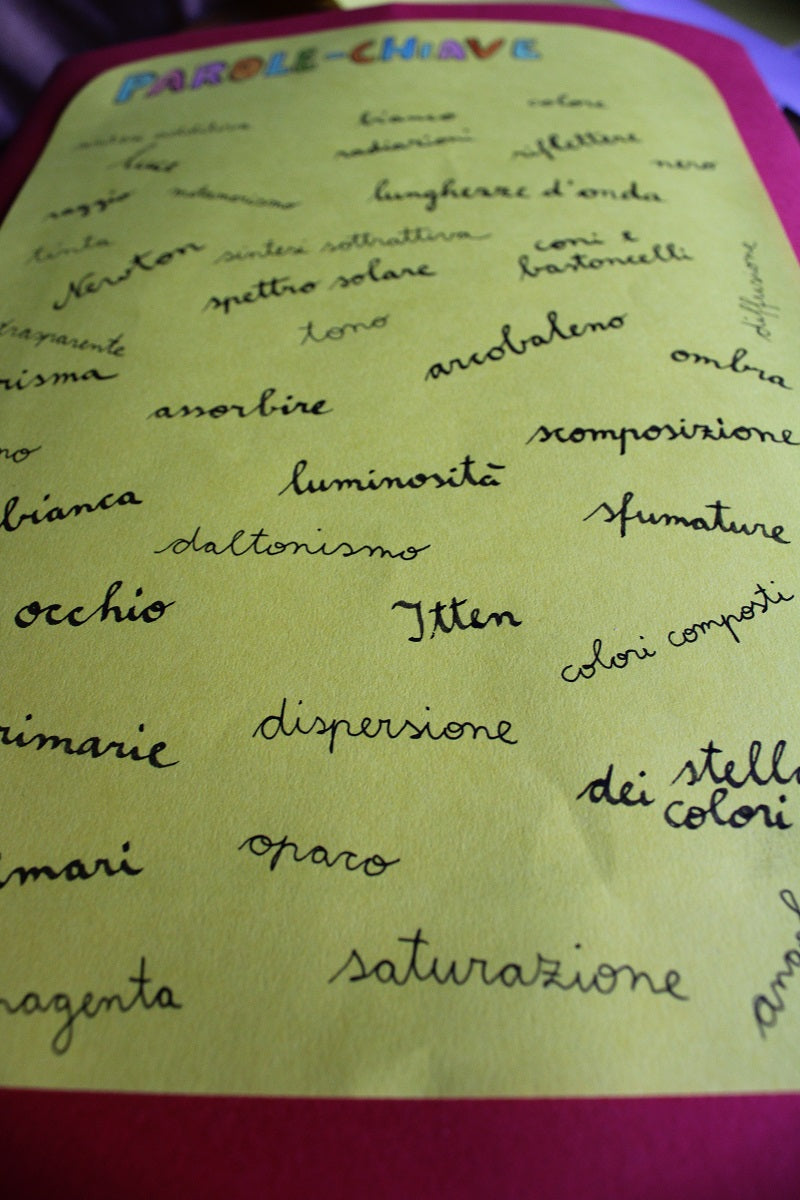 PAROLE-CHIAVE
colore
bianco
sintesi additiva
radiazioni
riflettere
luce
nero
raggio
metamerismo
lunghezze d'onda
tinta
Newton
sintesi sottrattiva
coni e
bastoncelli
spettro solare
diffusione
trasparente
tono
arcobaleno
ombra
risma
assorbire
scomposizione
no
luminosità
bianca
sfumature
daltonismo
occhio
Itten
colori composti
rimarie
dispersione
dei stella
colori
mari
opaco
saturazione
magenta